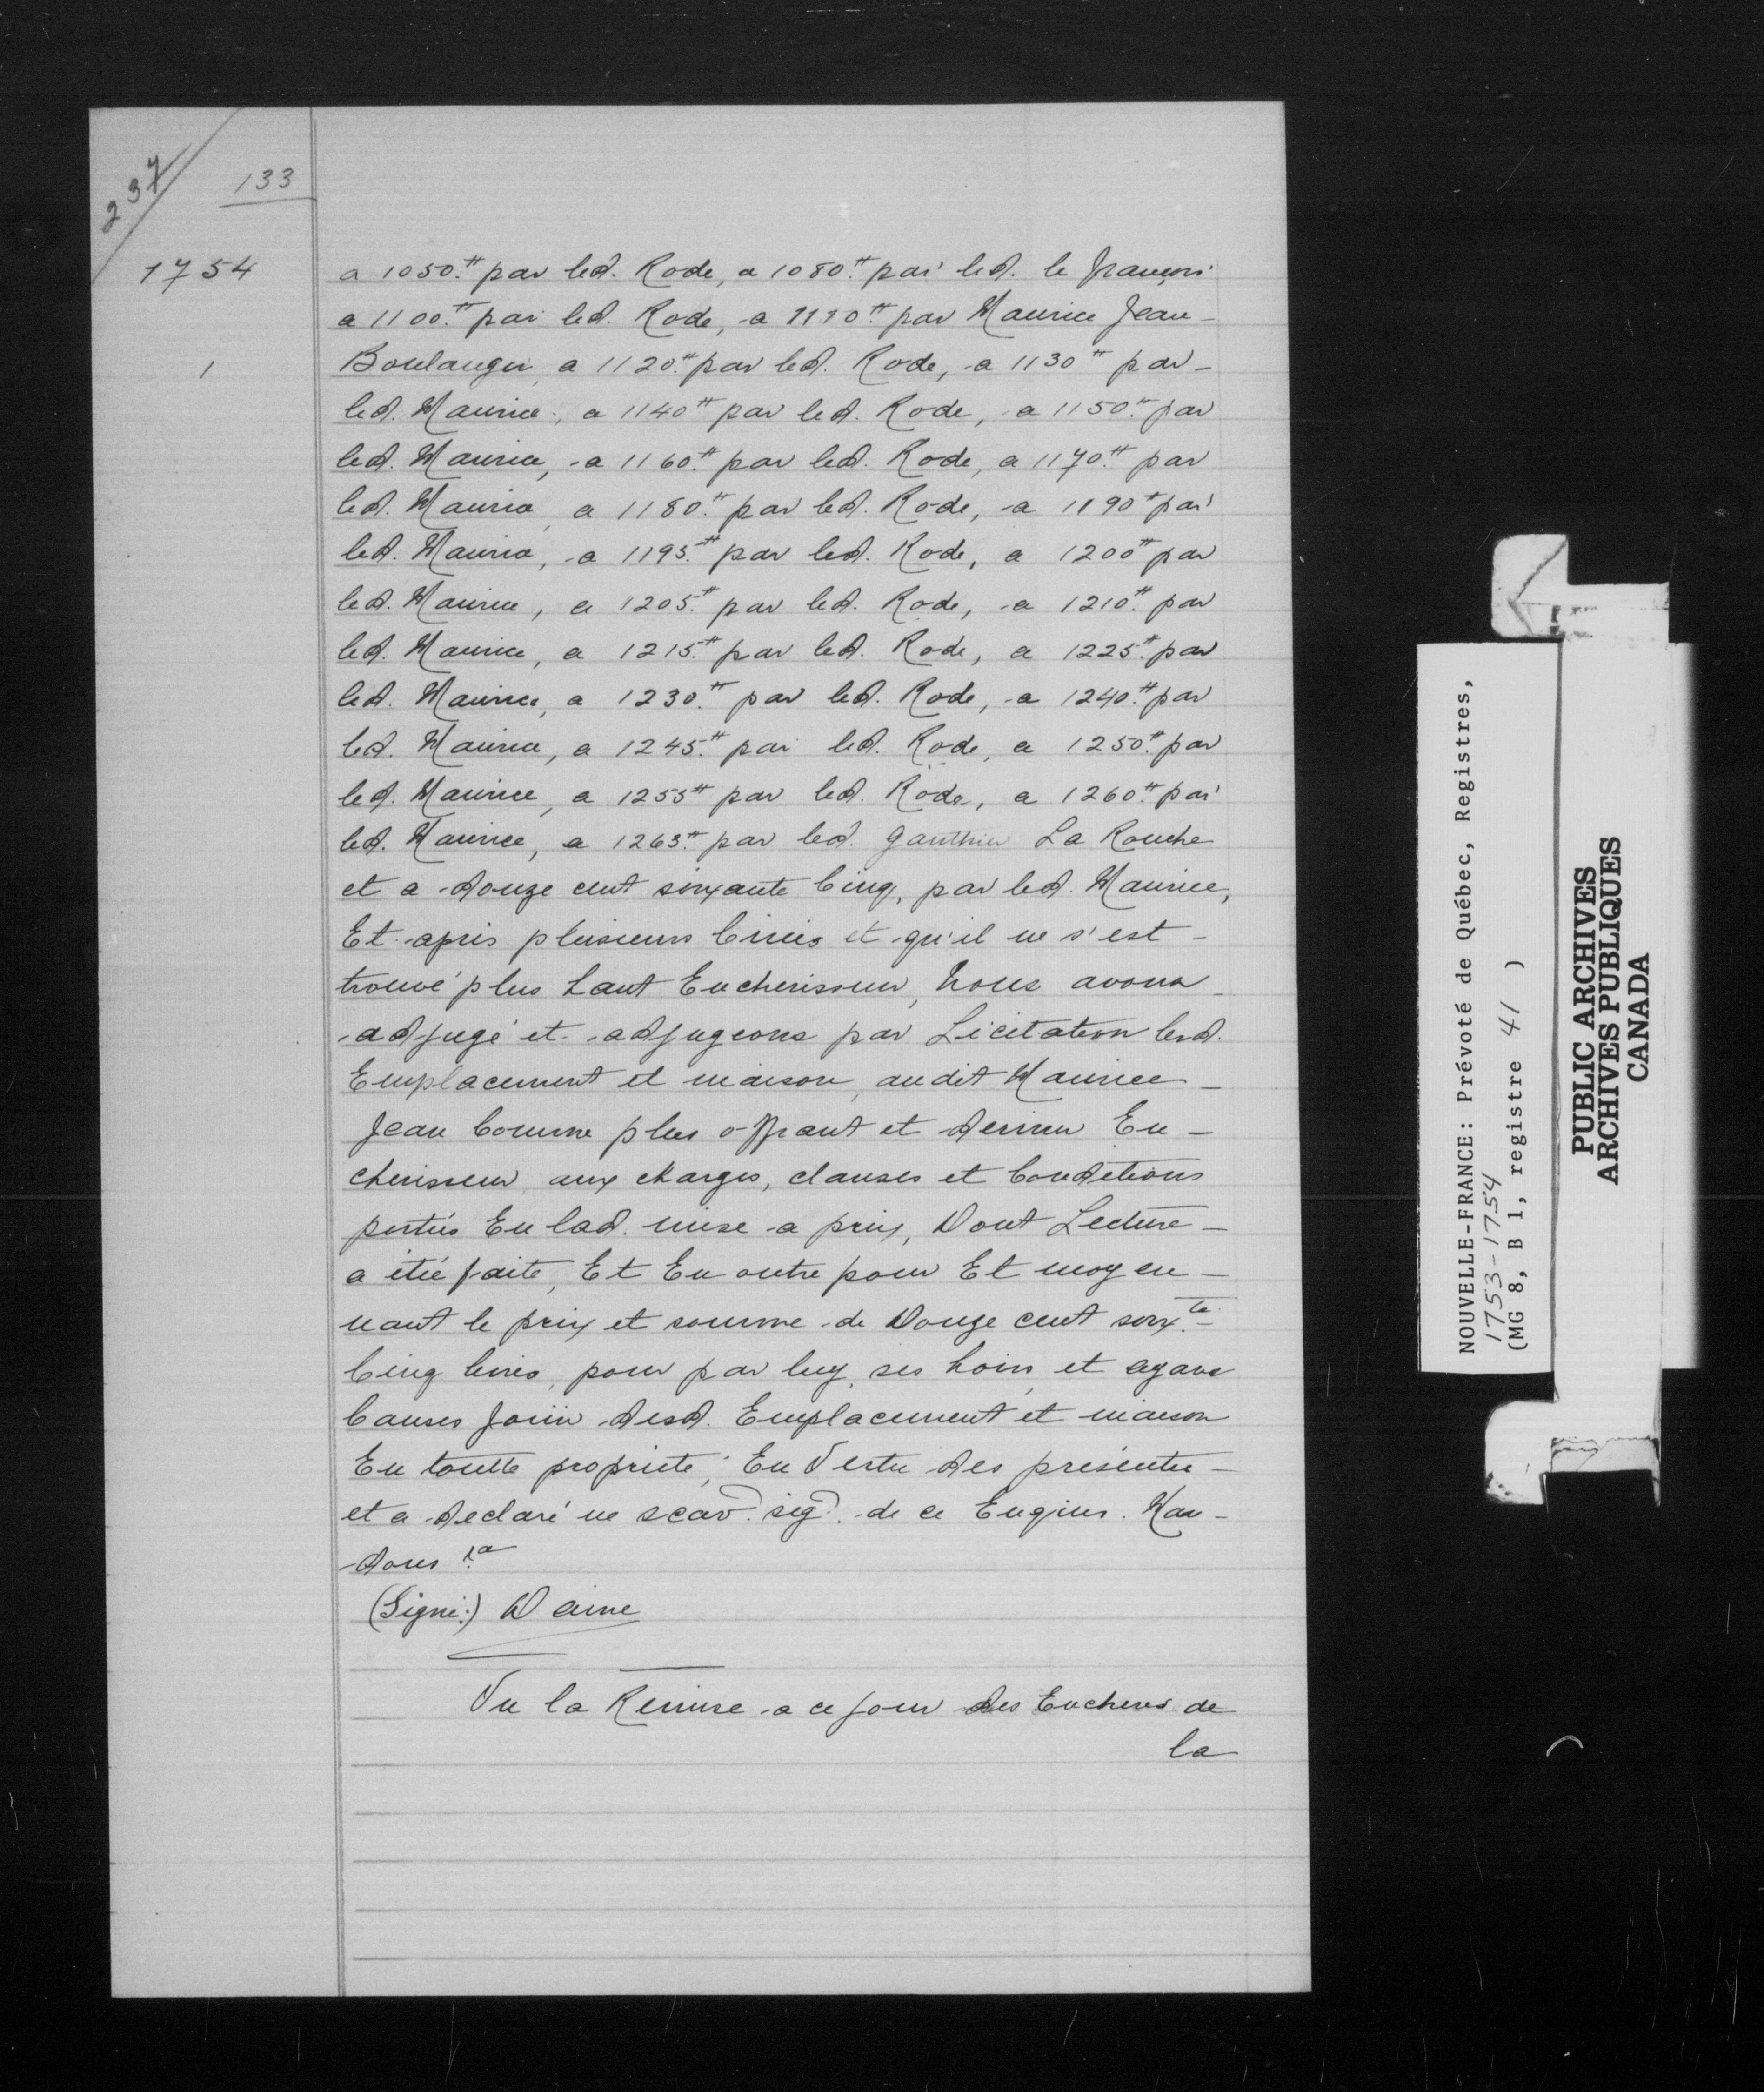 237
133
1754
1
a 1050.tt par led. Rode, a 1080.tt par led. le françois
a 1100.tt par led. Rode, a 1110.tt par Maurice Jean -
Boulanger, a 1120.tt par led. Rode, a 1130tt par -
led. Maurice, a 1140tt par led. Rode, a 1150.tt par
led. Maurice, a 1160.tt par led. Rode, a 1170.tt par
led. Maurice, a 1180.tt par led. Rode, a 1190tt par
led. Maurice, a 1195.tt par led. Rode, a 1200tt par
led. Maurice, a 1205.tt par led. Rode, a 1210.tt par
led. Maurice, a 1215.tt par led. Rode, a 1225.tt par
led. Maurice, a 1230.tt par led. Rode, a 1240.tt par
led. Maurice, a 1245.tt par led. Rode, a 1250.tt par
led. Maurice, a 1255tt par led. Rode, a 1260.tt par
led. Maurice, a 1263.tt par led. gauthier La Rouche
et a douze cent soixante Cinq, par led. Maurice,
Et après plusieurs Criées et qu'il ne s'est -
trouvé plus haut Encherisseur, Nous avons -
adjugé et adjugeons par Licitation lesd.
Emplacement et maison, audit Maurice -
Jean Comme plus offrant et dernier En -
cherisseur, aux charges, clauses et Conditions
portées En lad. mise a prix, Dont Lecture -
a étée faite, Et En outre pour Et moyen -
nant le prix et somme de Douze cent soixte. -
Cinq livres, pour par luy, ses hoirs et ayans
Causes Jouir desd. Emplacement et maison
En toutte propriété, En Vertu des présentes -
et a declaré ne scav. sig. de ce Enquis. Man -
dons &a
(Signé:) Daine
Vu la Remise a ce jour des Encheres de
la
NOUVELLE-FRANCE: Prévoté de Québec, Registres,
1753-1754
(MG 8, B 1, registre 41 )
PUBLIC ARCHIVES
ARCHIVES PUBLIQUES
CANADA